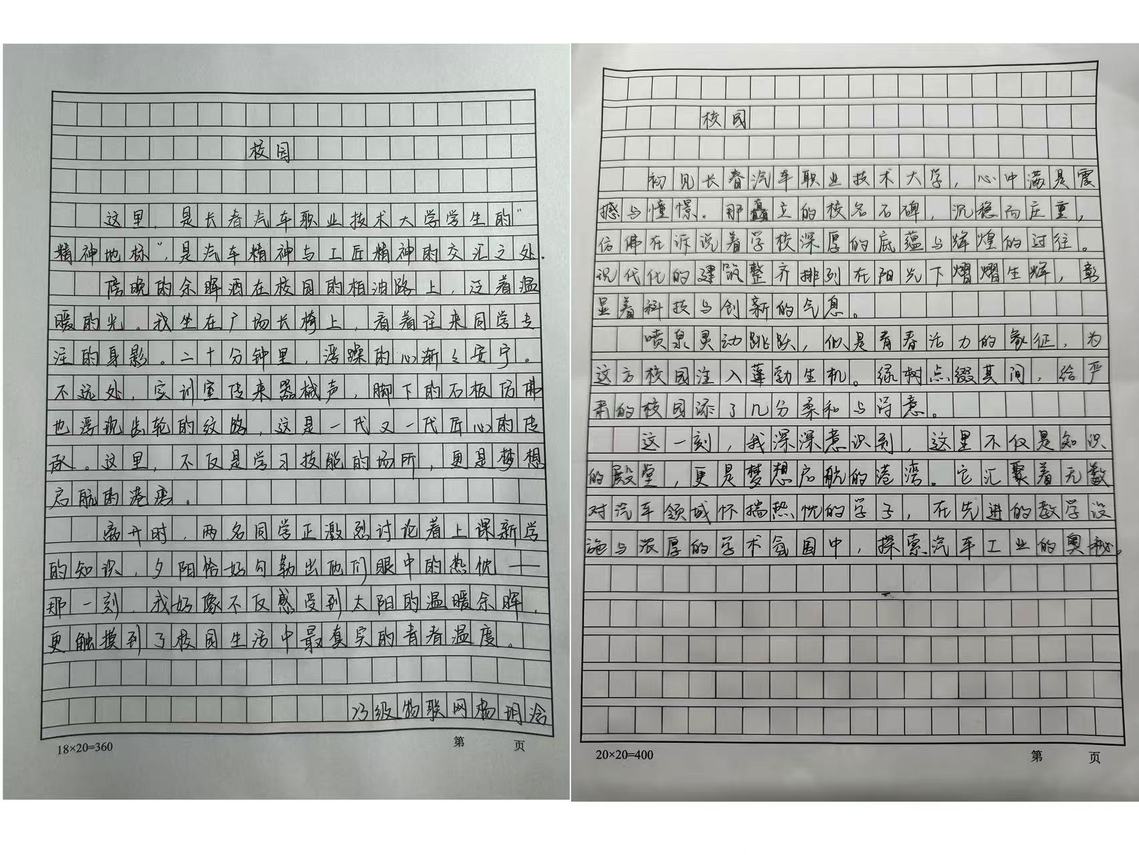 校园
这里，是长春汽车职业技术大学学生的“
精神地标”，是汽车精神与工匠精神的交汇之处.
傍晚的余晖洒在校园的柏油路上，泛着温
暖的光。我坐在广场长椅上，看着往来同学专
注的身影。二十分钟里，浮躁的心渐渐安宁。
不远处，实训室传来器械声，脚下的石板仿佛
也浮现齿轮的纹路，这是一代又一代匠心的传
承。这里，不仅是学习技能的场所，更是梦想
启航的港湾。
离开时，两名同学正激烈讨论着上课新学
的知识，夕阳恰好勾勒出他们眼中的热忱——
那一刻，我好像不仅感受到太阳的温暖余晖，
更触摸到了校园生活中最真实的青春温度。
23级物联网杨
18×20=360
第 页
校园
初见长春汽车职业技术大学，心中满是震
撼与憧憬。那矗立的校名石碑，沉稳而庄重，
仿佛在诉说着学校深厚的底蕴与辉煌的过往。
现代化的建筑整齐排列在阳光下熠熠生辉，彰
显着科技与创新的气息。
喷泉灵动跳跃，似是青春活力的象征，为
这方校园注入蓬勃生机。绿树点缀其间，给严
肃的校园添了几分柔和与诗意。
这一刻，我深深意识到，这里不仅是知识
的殿堂，更是梦想启航的港湾。它汇聚着无数
对汽车领域怀揣热忱的学子，在先进的教学设
施与浓厚的学术氛围中，探索汽车工业的奥秘。
20×20=400
第 页